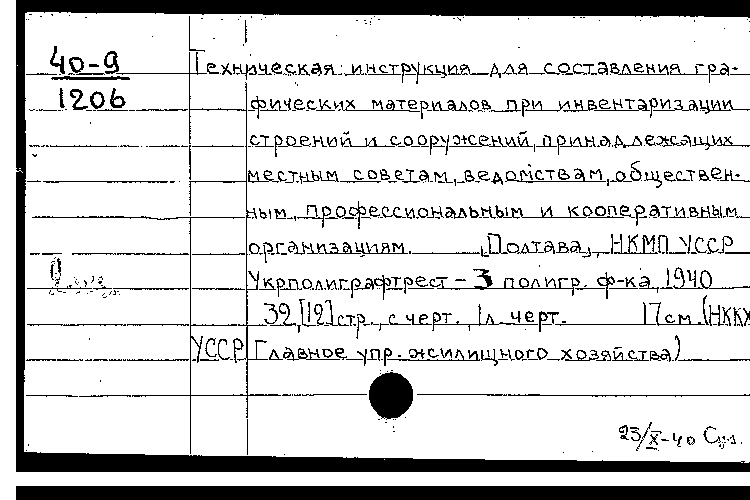 40-9
1206
Техническая инструкция для составления гра-
фических материалов при инвентаризации
строений и сооружений, принадлежащих
местным советам, ведомствам, обществен-
ным, профессиональным и кооперативным
организациям. [Полтава], НКМП УССР
Укрполиграфтрест - 3 полигр. ф-ка, 1940
32,[12] стр., с черт., 1 л. черт. 17 см. (НККХ
УССР Главное упр. жилищного хозяйства)
23/X-40